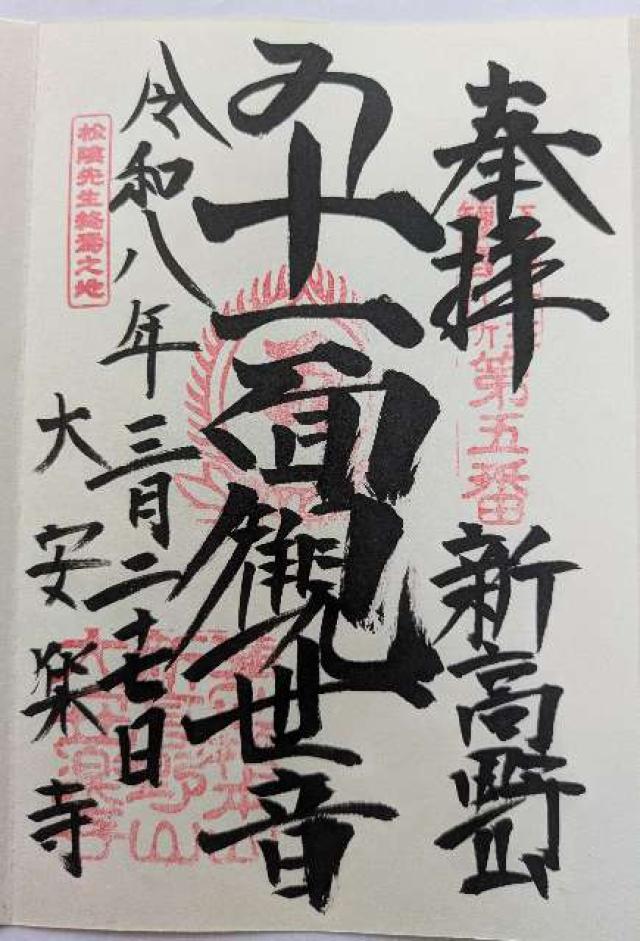 奉拝
第五番
新高野山
十一面観世音
令和八年三月二十七日
松陰先生終焉之地
大安楽寺